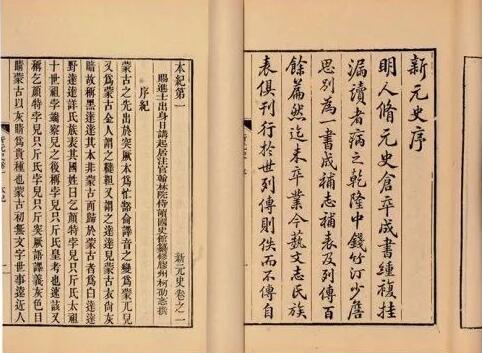 新元史序
明人脩元史倉卒成書緟複挂
漏讀者病之乾隆中錢竹汀少詹
思別為一書成補志補表及列傳百
餘篇然迄未卒業今藝文志氏族
表俱刊行於世列傳則佚而不傳自
本紀第一 新元史卷之一
賜進士出身日講起居注官翰林院侍讀國史館纂修膠州柯劭忞撰
序紀
蒙古之先出於突厥本爲忙豁侖譯音之變爲蒙兀兒
又爲蒙古金人謂之韃靼又謂之達達兒蒙古衣尚灰
暗故稱黑達達其本非蒙古而歸於蒙古者爲白達達
野達達詳氏族表其國姓曰乞顏特孛兒只斤氏太祖
十世祖孛端察兒之後稱孛兒只斤氏皇考也速該又
稱乞顏特孛兒只斤氏孛兒只斤突厥語譯義灰色目
睛蒙古以灰睛爲貴種也蒙古初無文字世事遠近人